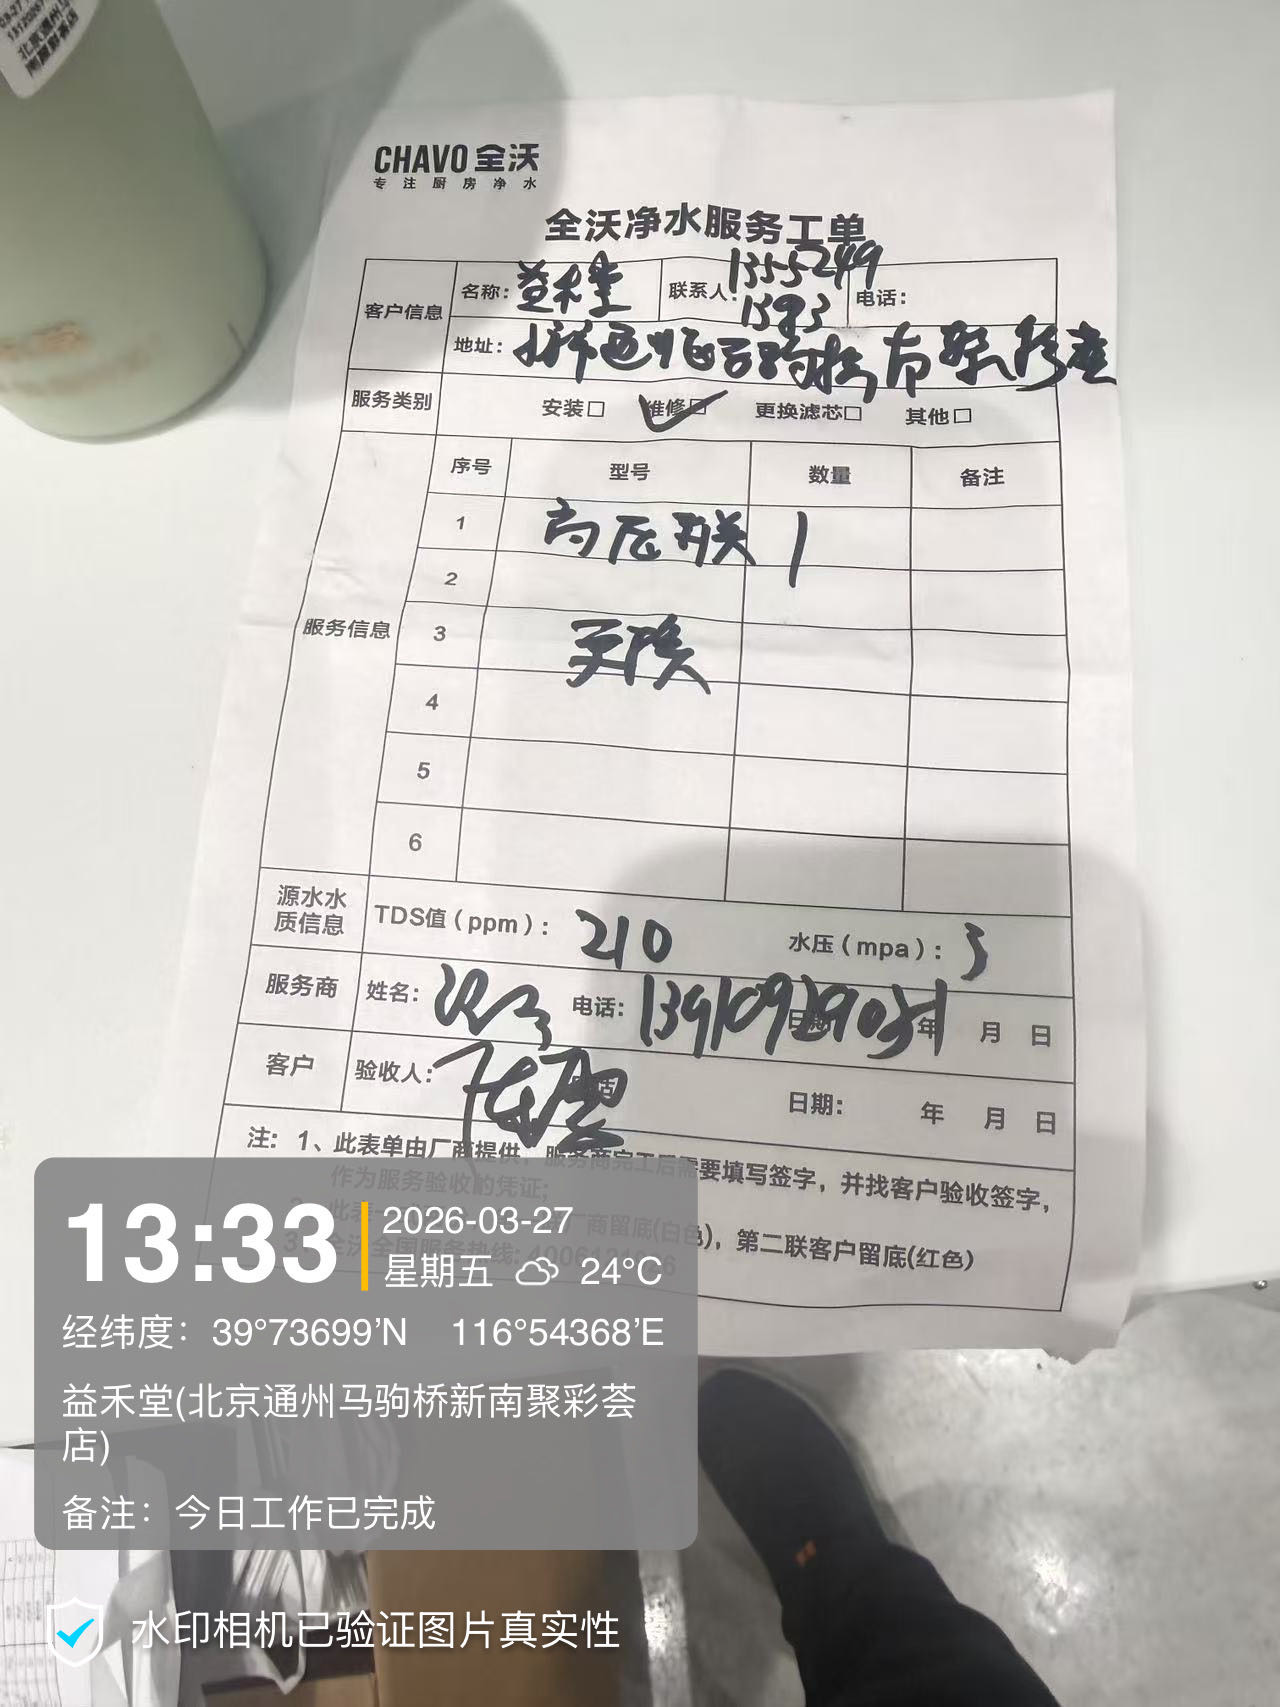 CHAVO 全沃
专注厨房净水
全沃净水服务工单
客户信息 名称: 益禾堂 联系人: 1355249 电话:
地址:
服务类别 安装□ 维修□ 更换滤芯□ 其他□
服务信息 序号 型号 数量 备注
1 高压开关 1
2
3 更换
4
5
6
源水水质信息 TDS值(ppm): 210 水压(mpa): 3
服务商 姓名: 电话: 13910929031 年 月 日
客户 验收人: 日期: 年 月 日
注: 1、此表单由厂商提供,服务商完工后需要填写签字,并找客户验收签字,
作为服务验收的凭证;
厂商留底(白色),第二联客户留底(红色)
全沃全国服务热线:
13:33 2026-03-27
星期五 24°C
经纬度: 39°73699'N 116°54368'E
益禾堂(北京通州马驹桥新南聚彩荟
店)
备注: 今日工作已完成
水印相机已验证图片真实性